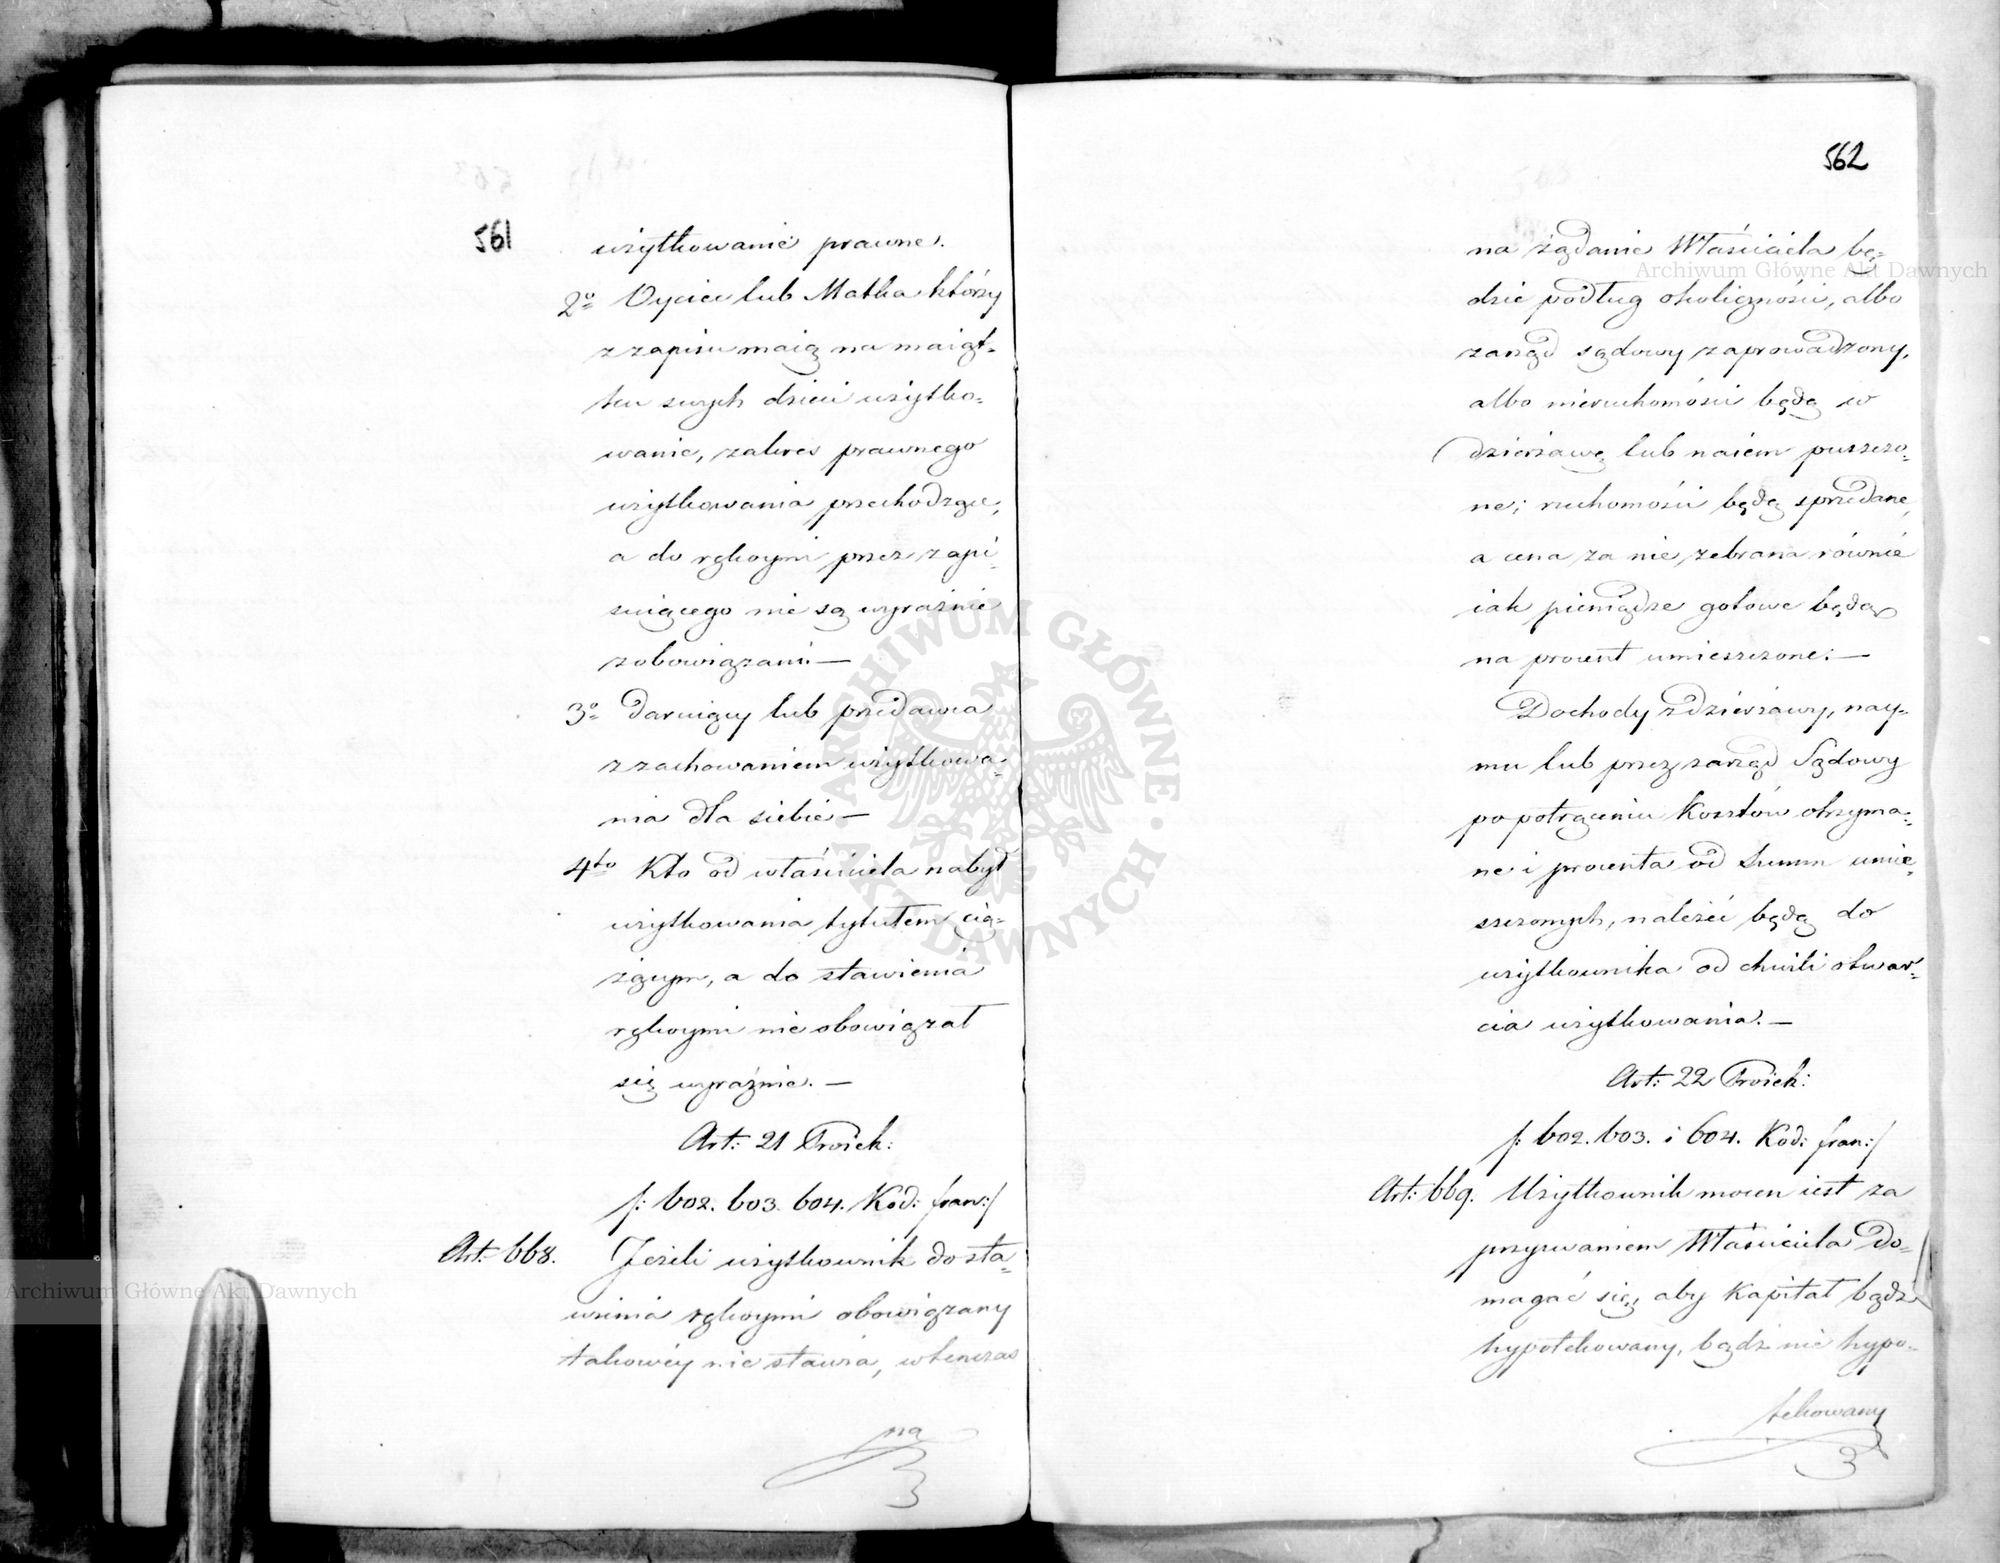 561
użytkowanie prawne.
2º Oyciec lub Matka którzy
z zapisu maią na maiąt=
ku swych dzieci użytko=
wanie, zakres prawnego
użytkowania przechodzące,
a do rękoymi przez zapi=
suiącego nie są wyraźnie
zobowiązani. —
3º daruiący lub przedawca
z zachowaniem użytkowa=
nia dla siebie —
4to Kto od właściciela nabył
użytkowania tytułem cią=
żącym, a do stawienia
rękoymi nie obowiązał
się wyraźnie. —
Art: 21 Proiek:
/: 602. 603. 604. Kod: fran:/
Art: 668. Jeżeli użytkownik do sta=
wienia rękoymi obowiązany
takowéy nie stawia, wtenczas
na
562
na żądanie Właściciela bę=
dzie podług okoliczności, albo
zarząd sądowy zaprowadzony,
albo nieruchomości będą w
dzierżawę lub naiem puszczo=
ne; ruchomości będą sprzedane,
a cena za nie zebrana równie
iak pieniądze gotowe będą
na procent umieszczone. —
Dochody z dzierżawy, nay=
mu lub przez zarząd Sądowy
po potrąceniu Kosztów otrzyma=
ne i procenta od Summ umie=
szczonych, należéć będą do
użytkownika od chwili otwar=
cia użytkowania. —
Art: 22 Proiek:
/: 602. 603. i 604. Kod: fran:/
Art: 669. Użytkownik mocen iest za
przyzwaniem Właściciela do=
magać się, aby Kapitał bądź
hypotekowany, bądź nie hypo=
tekowany
Archiwum Główne Akt Dawnych
Archiwum Główne Akt Dawnych
ARCHIWUM GŁÓWNE · AKT DAWNYCH ·